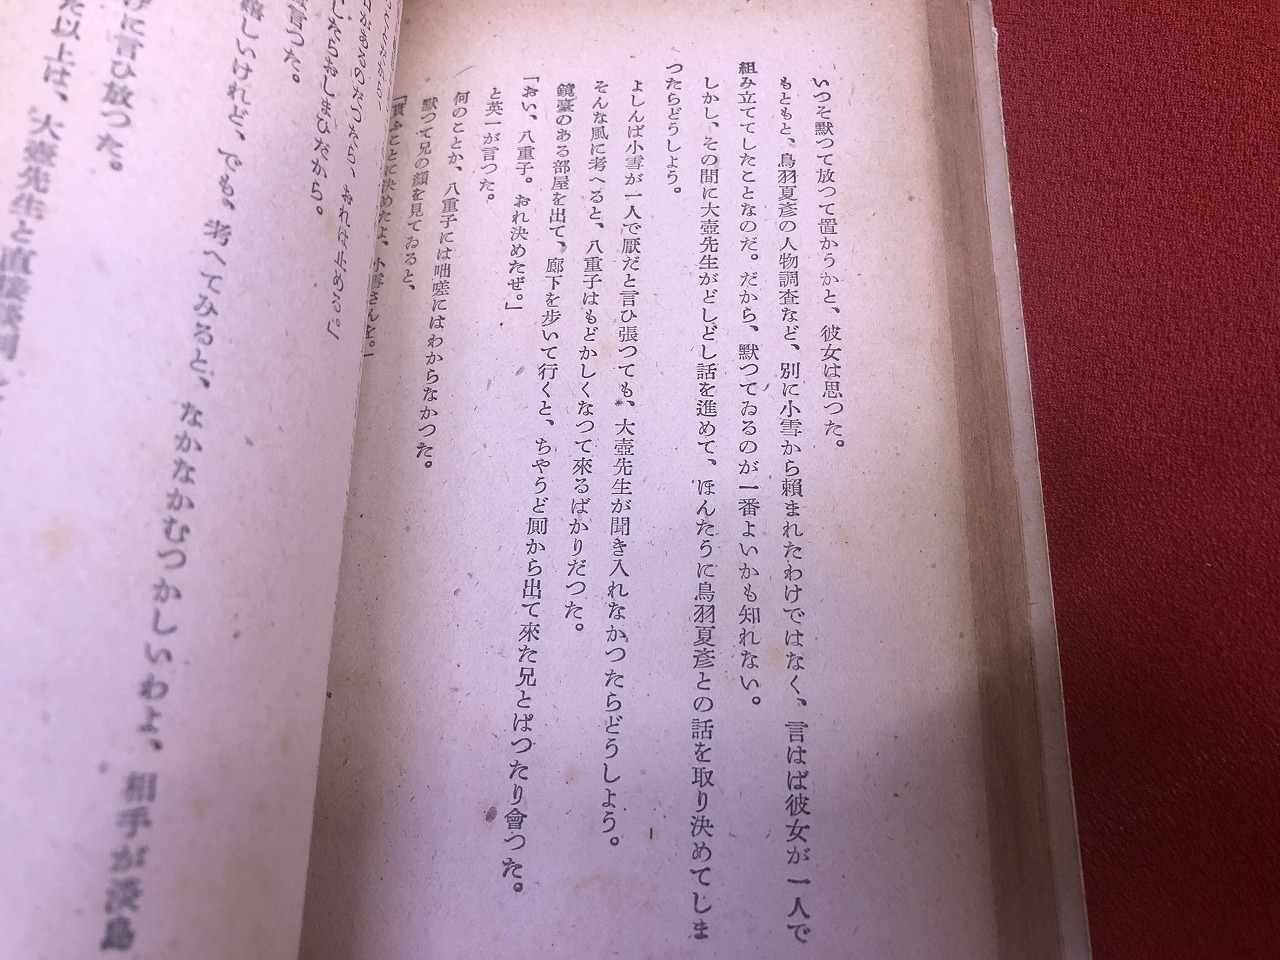 いつそ默つて放つて置かうかと、彼女は思つた。
もともと、鳥羽夏彦の人物調査など、別に小雪から賴まれたわけではなく、言はば彼女が一人で
組み立ててしたことなのだ。だから、默つてゐるのが一番よいかも知れない。
しかし、その間に大壺先生がどしどし話を進めて、ほんたうに鳥羽夏彦との話を取り決めてしま
つたらどうしよう。
よしんば小雪が一人で厭だと言ひ張つても、大壺先生が聞き入れなかつたらどうしよう。
そんな風に考へると、八重子はもどかしくなつて來るばかりだつた。
鏡臺のある部屋を出て、廊下を步いて行くと、ちやうど厠から出て來た兄とぱつたり會つた。
「おい、八重子。おれ決めたぜ。」
と英一が言つた。
何のことか、八重子には咄嗟にはわからなかつた。
默つて兄の顏を見てゐると、
「貰ふことに決めたよ、小雪さんを。」
があるのだつたら、おれは止める。」
したらおしまひだから。
言つた。
しいけれど、でも、考へてみると、なかなかむつかしいわよ、相手が淡島
に言ひ放つた。
以上は、大壺先生と直接談判